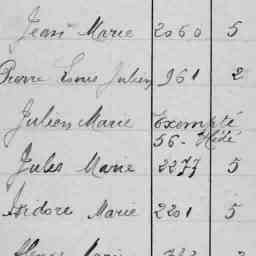 Jean Marie 2060 5
Pierre Louis Julien 961 2
Julien Marie Exempté
56 - Hédé
Jules Marie 2277 5
Isidore Marie 2201 5